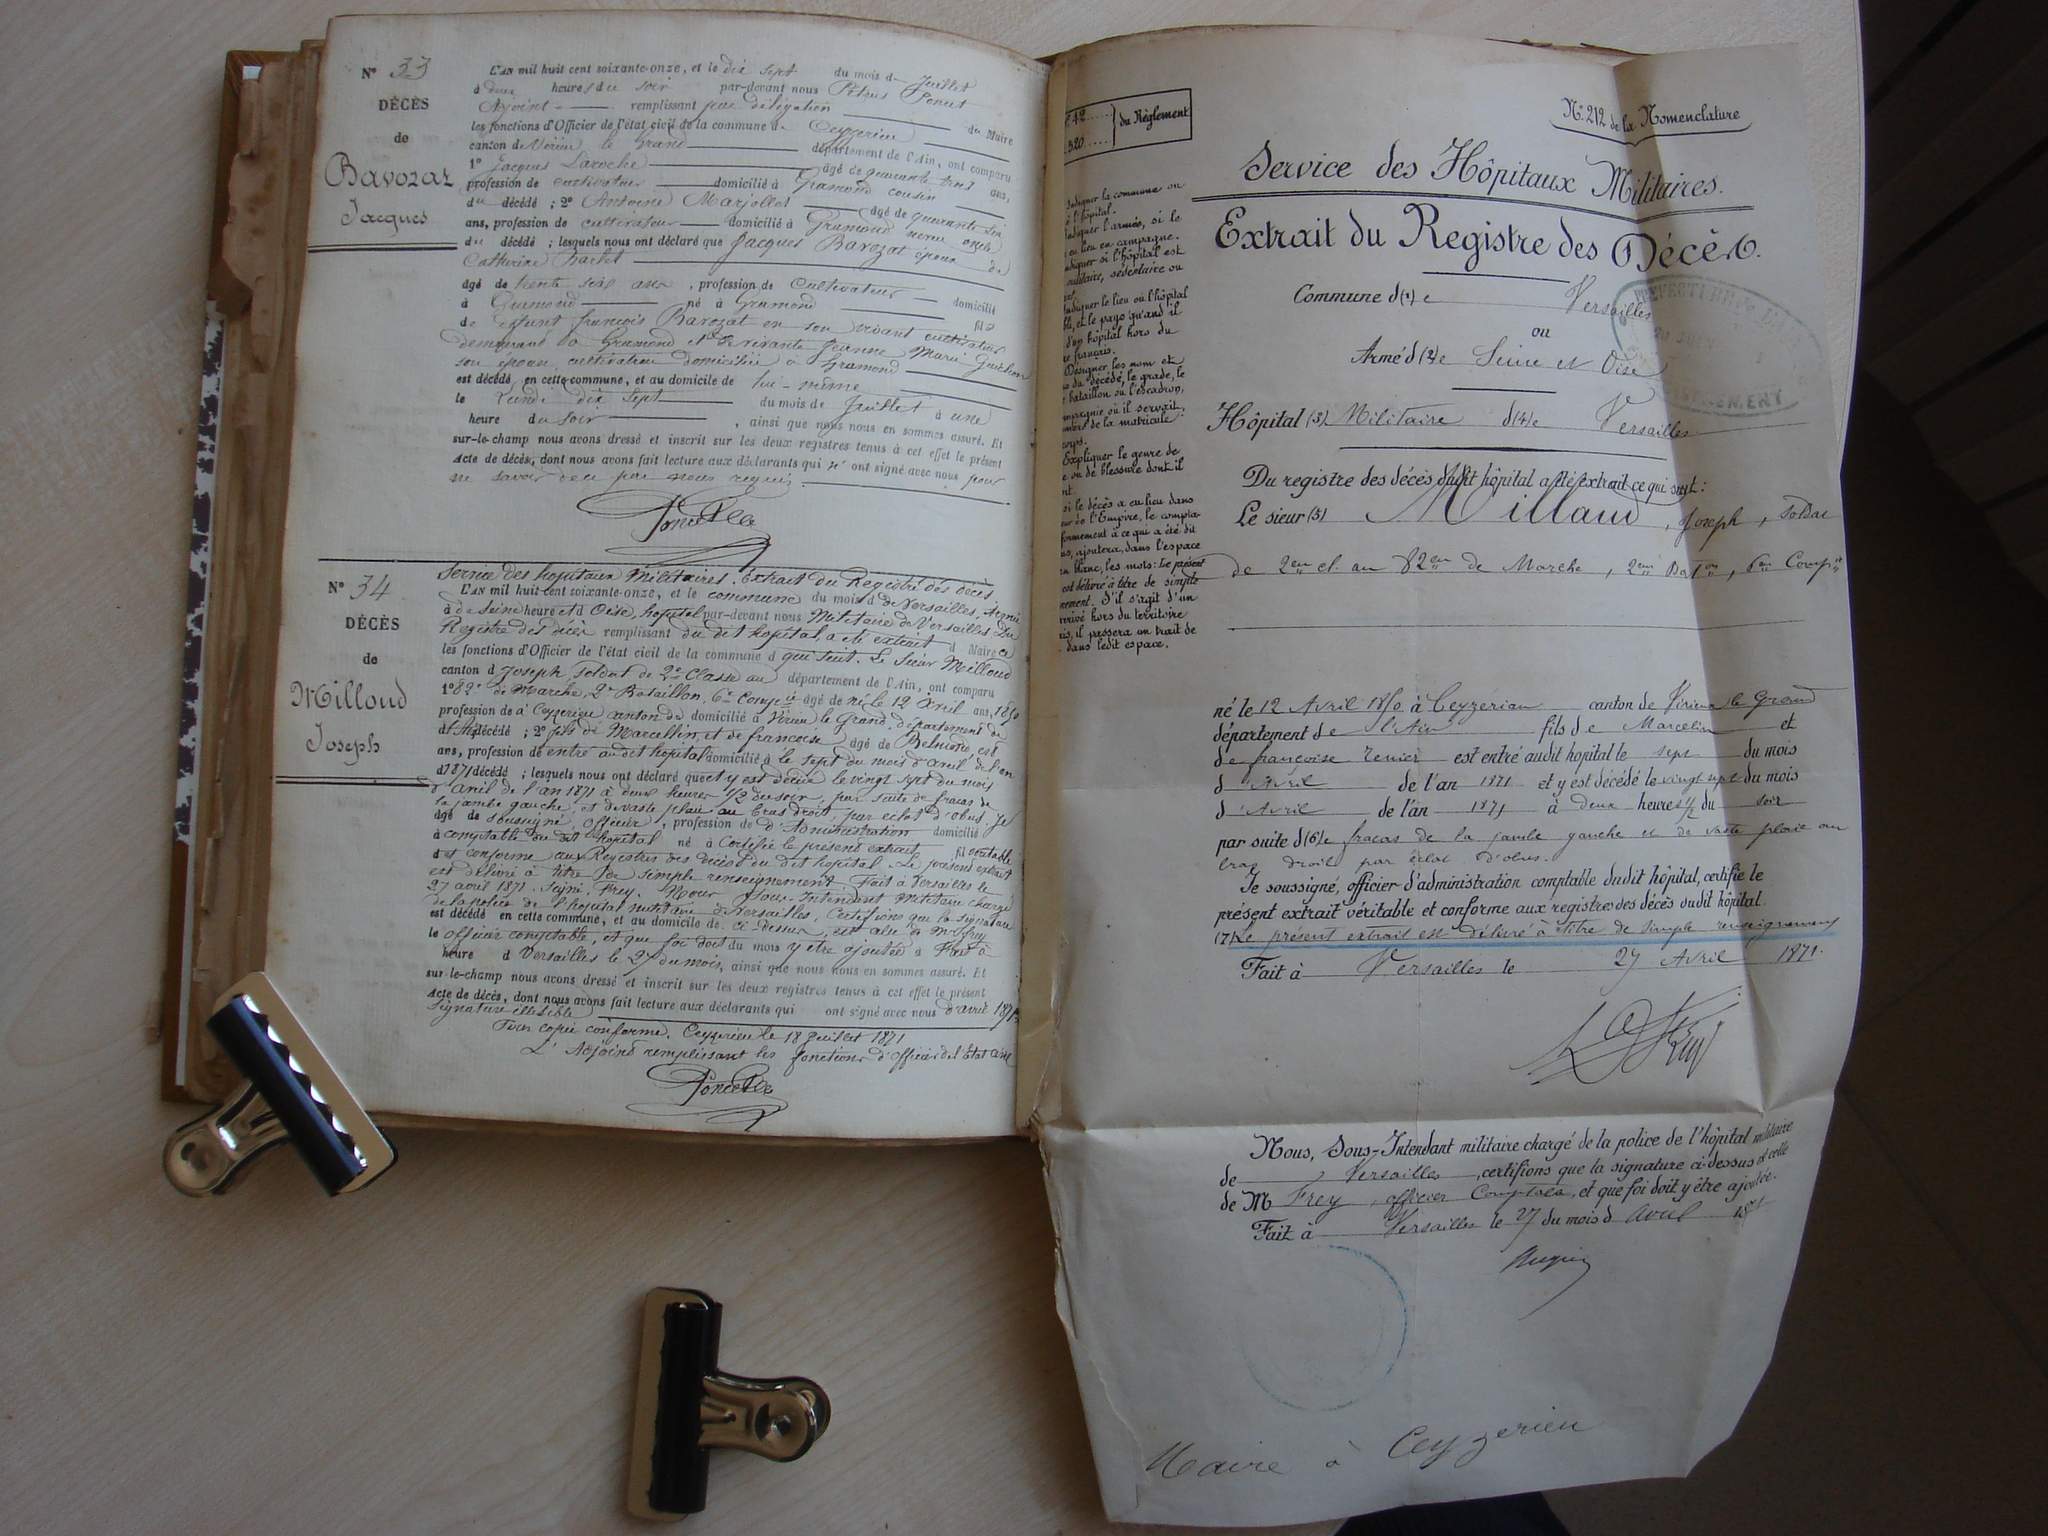 N° 33
DÉCÈS
de
Bavozat
Jacques
L'AN mil huit cent soixante-onze, et le dix sept du mois d Juillet
à deux heures du soir par-devant nous Pétrus Poncet
Adjoint remplissant par délégation du Maire
les fonctions d'Officier de l'état civil de la commune d Ceyzerieu
canton de Virieu le Grand département de l'Ain, ont comparu
1° Jacques Laroche âgé de quarante trois ans,
profession de cultivateur domicilié à Gramond cousin
du décédé ; 2° Antoine Marjollet âgé de quarante six
ans, profession de cultivateur domicilié à Gramond
du décédé ; lesquels nous ont déclaré que Jacques Bavozat époux de
Catherine
âgé de trente six ans, profession de Cultivateur domicilié
à Gramond né à Gramond fils
de défunt françois Bavozat en son vivant cultivateur
demeurant à Gramond et de vivante Jeanne Marie
son épouse cultivatrice domiciliée à Gramond
est décédé en cette commune, et au domicile de lui-même
le Lundi dix sept du mois de Juillet à une
heure du soir, ainsi que nous nous en sommes assuré. Et
sur-le-champ nous avons dressé et inscrit sur les deux registres tenus à cet effet le présent
acte de décès, dont nous avons fait lecture aux déclarants qui n'ont signé avec nous pour
ne savoir de ce par nous requis
Poncet
N° 34
DÉCÈS
de
Milloud
Joseph
Service des hopitaux Militaires. Extrait du Registre des décès
L'AN mil huit cent soixante-onze, et le commune du mois d de Versailles, Armée
à de Seine heure et d Oise, hopital par-devant nous Militaire de Versailles Du
Registre des décès remplissant du dit hopital, a été extrait d Maire ce
les fonctions d'Officier de l'état civil de la commune d qui suit. Le Sieur Milloud
canton d Joseph, Soldat de 2e Classe au département de l'Ain, ont comparu
1° 82e de Marche, 2e Bataillon, 6e Compie âgé de né le 12 Avril ans, 1850
profession de à Ceyzerieu canton de domicilié à Virieu le Grand département de
d l'Ain décédé ; 2° fils de Marcellin et de françoise âgé de est
ans, profession de entré au dit hopital domicilié à le sept du mois d'avril de l'an
d 1871 décédé ; lesquels nous ont déclaré que et y est décédé le vingt sept du mois
d'avril de l'an 1871 à deux heures 1/2 du soir, par suite de fracas de
la jambe gauche, et de vaste plaie au bras droit, par éclat d'obus. Je
âgé de soussigné, officier, profession de d'Administration domicilié
à comptable du dit hopital né à Certifie le présent extrait fil véritable
d et conforme aux Registres des décès du dit hopital. Le présent extrait
est délivré à titre de simple renseignement. Fait à Versailles le
27 avril 1871. Signé: Frey. Nous Sous-Intendant Militaire chargé
de la police de l'hopital militaire de Versailles, Certifions que la signature
est décédé en cette commune, et au domicile de ci-dessus, est celle de Mr frey
le officier comptable, et que foi doit du mois y etre ajoutée à Fait à
heure d Versailles le 27 du mois, ainsi que nous nous en sommes assuré. Et
sur-le-champ nous avons dressé et inscrit sur les deux registres tenus à cet effet le présent
acte de décès, dont nous avons fait lecture aux déclarants qui ont signé avec nous d'avril 1871
Signature illisible
Pour copie conforme. Ceyzerieu le 18 Juillet 1871
L'Adjoint remplissant les fonctions d'officier de l'Etat civil
Poncet
42
320
du Règlement
Indiquer la commune ou
l'hôpital.
Indiquer l'armée, si le
lieu en campagne.
Indiquer si l'hôpital est
militaire, sédentaire ou
Indiquer le lieu où l'hôpital
et le pays quand il
d'un hôpital hors du
français.
Désigner les nom et
du décédé, le grade, le
bataillon ou l'escadron,
compagnie où il servait,
de la matricule
corps.
Expliquer le genre de
ou de blessure dont il
si le décès a eu lieu dans
de l'Empire, le compta-
conformément à ce qui a été dit
ajoutera, dans l'espace
blanc, les mots: Le présent
est délivré à titre de simple
S'il s'agit d'un
arrivé hors du territoire
il passera un trait de
dans ledit espace.
N° 212 de la Nomenclature
Service des Hôpitaux Militaires.
Extrait du Registre des Décès.
PRÉFECTURE DE L'AIN
Commune d(1)e Versailles
ou
Armé d(2)e Seine et Oise
Hôpital (3) Militaire d(4)e Versailles
Du registre des décès dudit hôpital a été extrait ce qui suit:
Le sieur (5) Millaud, Joseph, soldat
de 2em cl. au 82em de Marche, 2em Baton, 6em Compie
né le 12 Avril 1850 à Ceyzérian canton de Virieu le Grand
département de l'Ain fils de Marcelin et
de françoise Tenier est entré audit hôpital le sept du mois
d'Avril de l'an 1871 et y est décédé le vingt sept du mois
d'Avril de l'an 1871 à deux heures 1/2 du soir
par suite d(6)e fracas de la jambe gauche et de vaste plaie au
bras droit par éclat d'obus.
Je soussigné, officier d'administration comptable dudit hôpital, certifie le
présent extrait véritable et conforme aux registres des décès dudit hôpital.
(7) Le présent extrait est délivré à titre de simple renseignement
Fait à Versailles le 27 Avril 1871.
Frey
Nous, Sous-Intendant militaire chargé de la police de l'hôpital militaire
de Versailles, certifions que la signature ci-dessus est celle
de M Frey, officier Comptable, et que foi doit y être ajoutée.
Fait à Versailles le 27 du mois d Avril 1871
Maire à Ceyzerieu